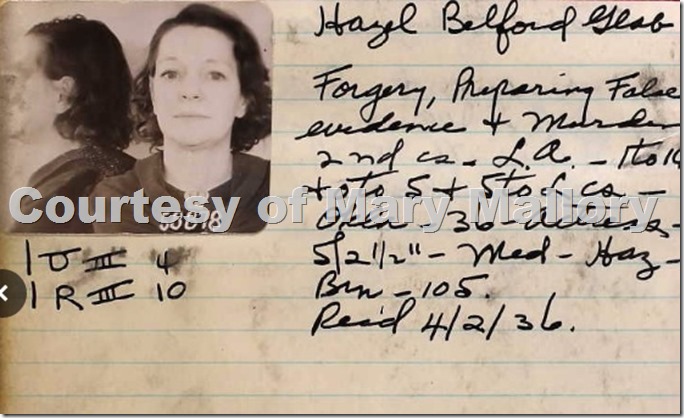 Hazel Belford Glab
Forgery, Preparing False
evidence & Murder
2nd cs - L.A. - 1 to 14
+ 0 to 5 + 5 to L cs -
36
5/2 1/2" - Med - Haz -
Brn - 105.
Rec'd 4/2/36.
Courtesy of Mary Mallory
1 U II 4
1 R III 10